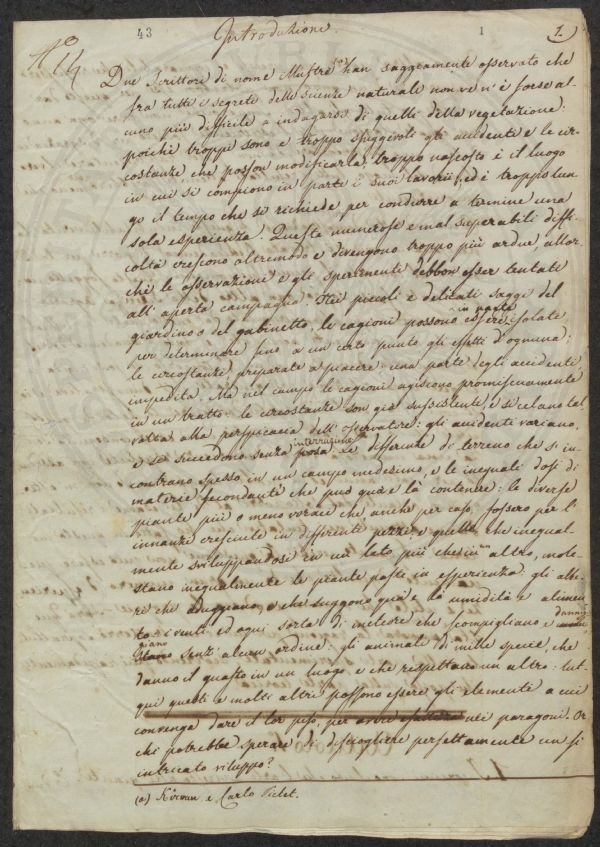 N.º 14
43
1
1.
Introduzione.
Due Scrittori di nome illustre (a) han saggiamente osservato che
fra tutti i segreti delle scienze naturali non ve n'è forse al-
cuno più difficile a indagarsi di quelli della vegetazione:
poichè troppi sono e troppo sfuggevoli gli accidenti e le cir-
costanze che posson modificarla, troppo nascosto è il luogo
in cui si compiono in parte i suoi lavorii, ed è troppo lun-
go il tempo che si richiede per condurre a termine una
sola esperienza. Queste numerose e mal superabili diffi-
coltà crescono altremodo e divengono troppo più ardue allor-
chè le osservazioni e gli sperimenti debbon esser tentati
all'aperta campagna. Nei piccoli e delicati saggi del
giardino o del gabinetto, le cagioni possono essere in parte isolate
per determinare fino a un certo punto gli effetti d'ognuna:
le circostanze preparate a piacere: una parte degli accidenti
impedita. Ma nel campo le cagioni agiscono promiscuamente
in un tratto: le circostanze son già sussistenti, e si celano tal
volta alla perspicacia dell'osservatore: gli accidenti variano,
e si succedono senza posa interruzione. Le differenze di terreno che si in-
contrano spesso in un campo medesimo, e le ineguali dosi di
materie fecondanti che può qua e là contenere: le diverse
piante più o meno voraci che anche per caso fossero per l'
innanzi cresciute in differenti pezzi: e quelle che inegual-
mente sviluppandosi in un lato più che in un altro, mole-
stano inegualmente le piante poste in esperienza: gli albe-
ri che aduggiano, o che suggono qua e là umidità e alimen-
to: i venti ed ogni sorta di meteore che scompigliano e danneg-
giano senz'alcun ordine: gli animali di mille specie, che
danno il guasto in un luogo, e che rispettano un altro: tut-
ti questi e molti altri possono essere gli elementi a cui
convenga dare il lor peso, per aver esattezza nei paragoni. Or
chi potrebbe sperare di disciogliere perfettamente un sì
intricato viluppo?
(a) Kirwan e Carlo Pictet.